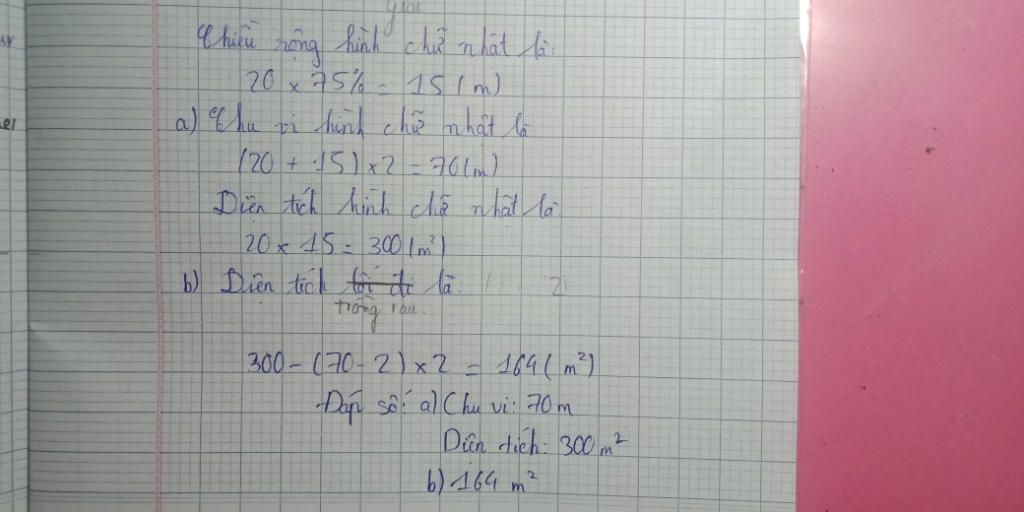 giải
Chiều rộng hình chữ nhật là:
20 × 75% = 15 (m)
a) Chu vi hình chữ nhật là
(20 + 15) × 2 = 70 (m)
Diện tích hình chữ nhật là:
20 × 15 = 300 (m²)
b) Diện tích lối đi là:
trồng rau.
300 - (70 - 2) × 2 = 164 (m²)
Đáp số: a) Chu vi: 70 m
Diện tích: 300 m²
b) 164 m²